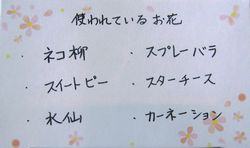 使われているお花
・ネコ柳 ・スプレーバラ
・スイートピー ・スターチース
・水仙 ・カーネーション